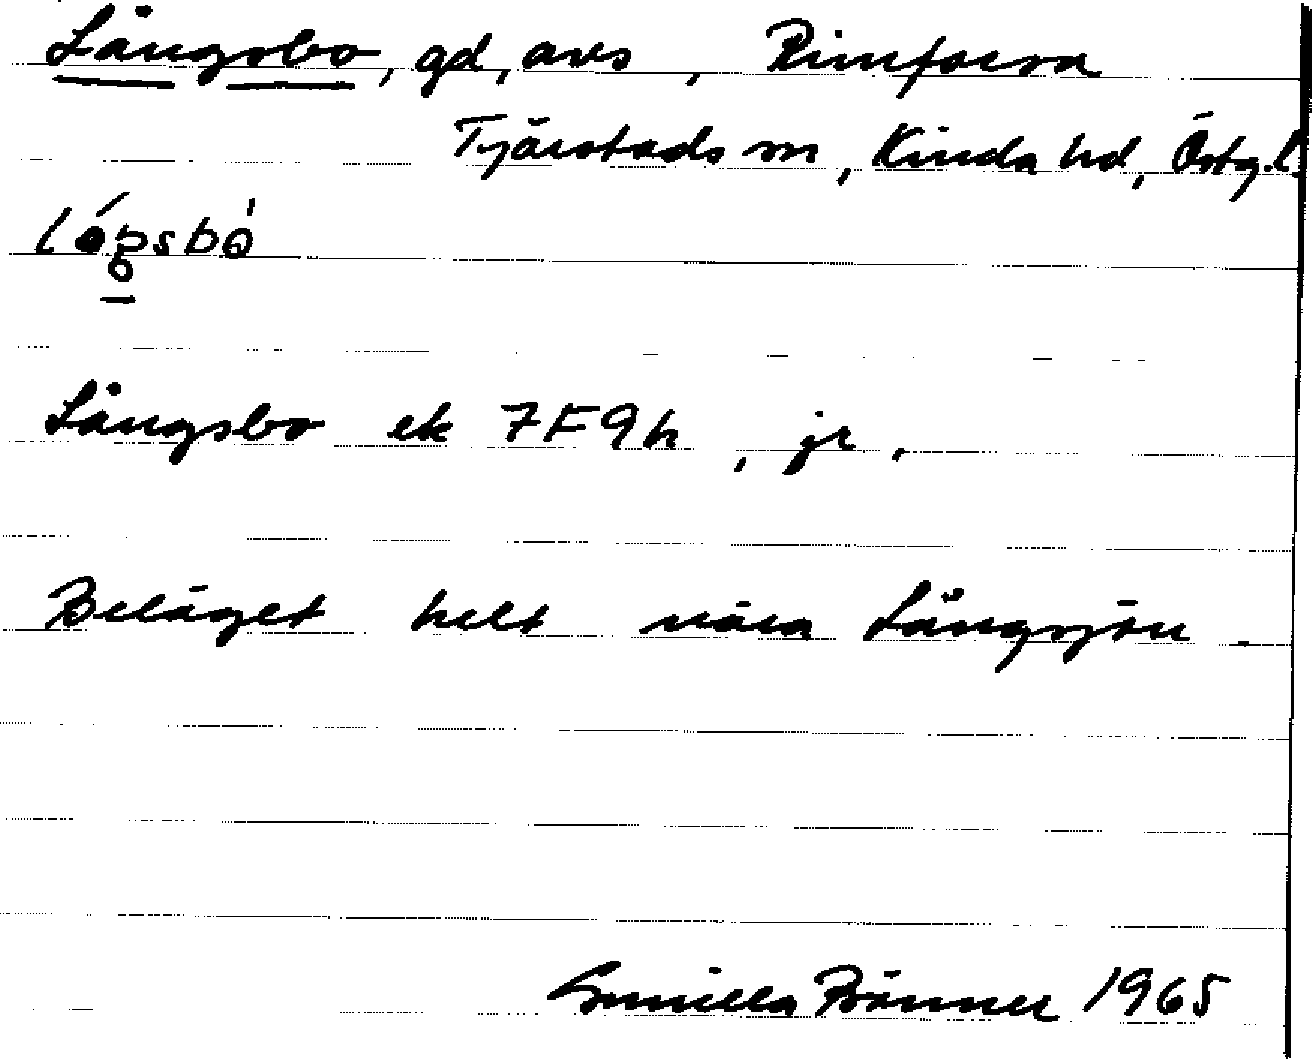 Långsbo, gd, avs, Rimforsa
Tjärstads sn, Kinda hd, Östg.l.
Långsbo ek 7F9h, jr,
Beläget helt nära Långsjön.
Gunilla 1965